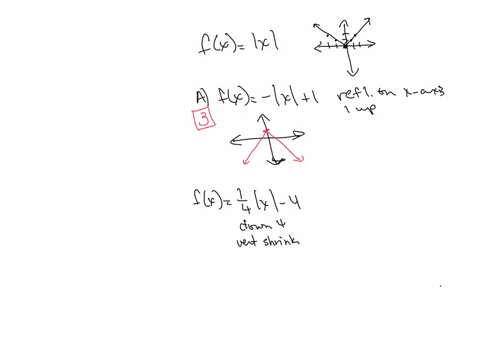 f(x) = |x|
A) f(x) = -|x| + 1 refl. on x-axis
3 1 up
f(x) = 1/4 |x| - 4
down 4
vert shrink